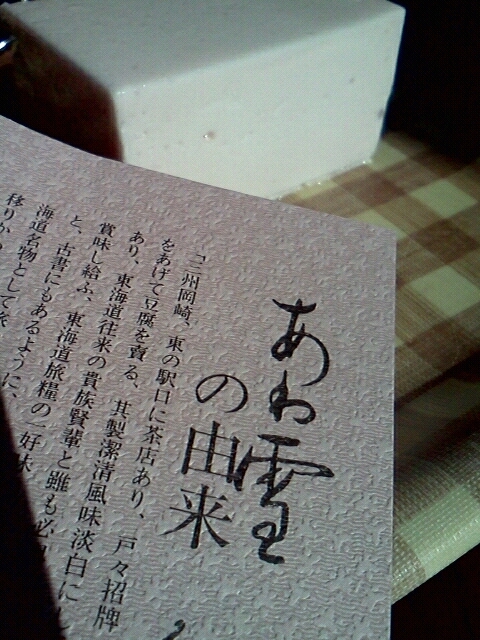 あわ雪
の由来
「三州岡崎、東の駅口に茶店あり、戸々招牌
をあげて豆腐を賣る、其製潔清風味淡白にし
あり、東海道往来の貴族賢輩と雖も必
賞味し給ふ、東海道旅糧の一好味
と、古書にもあるように、
海道名物として旅
移りか